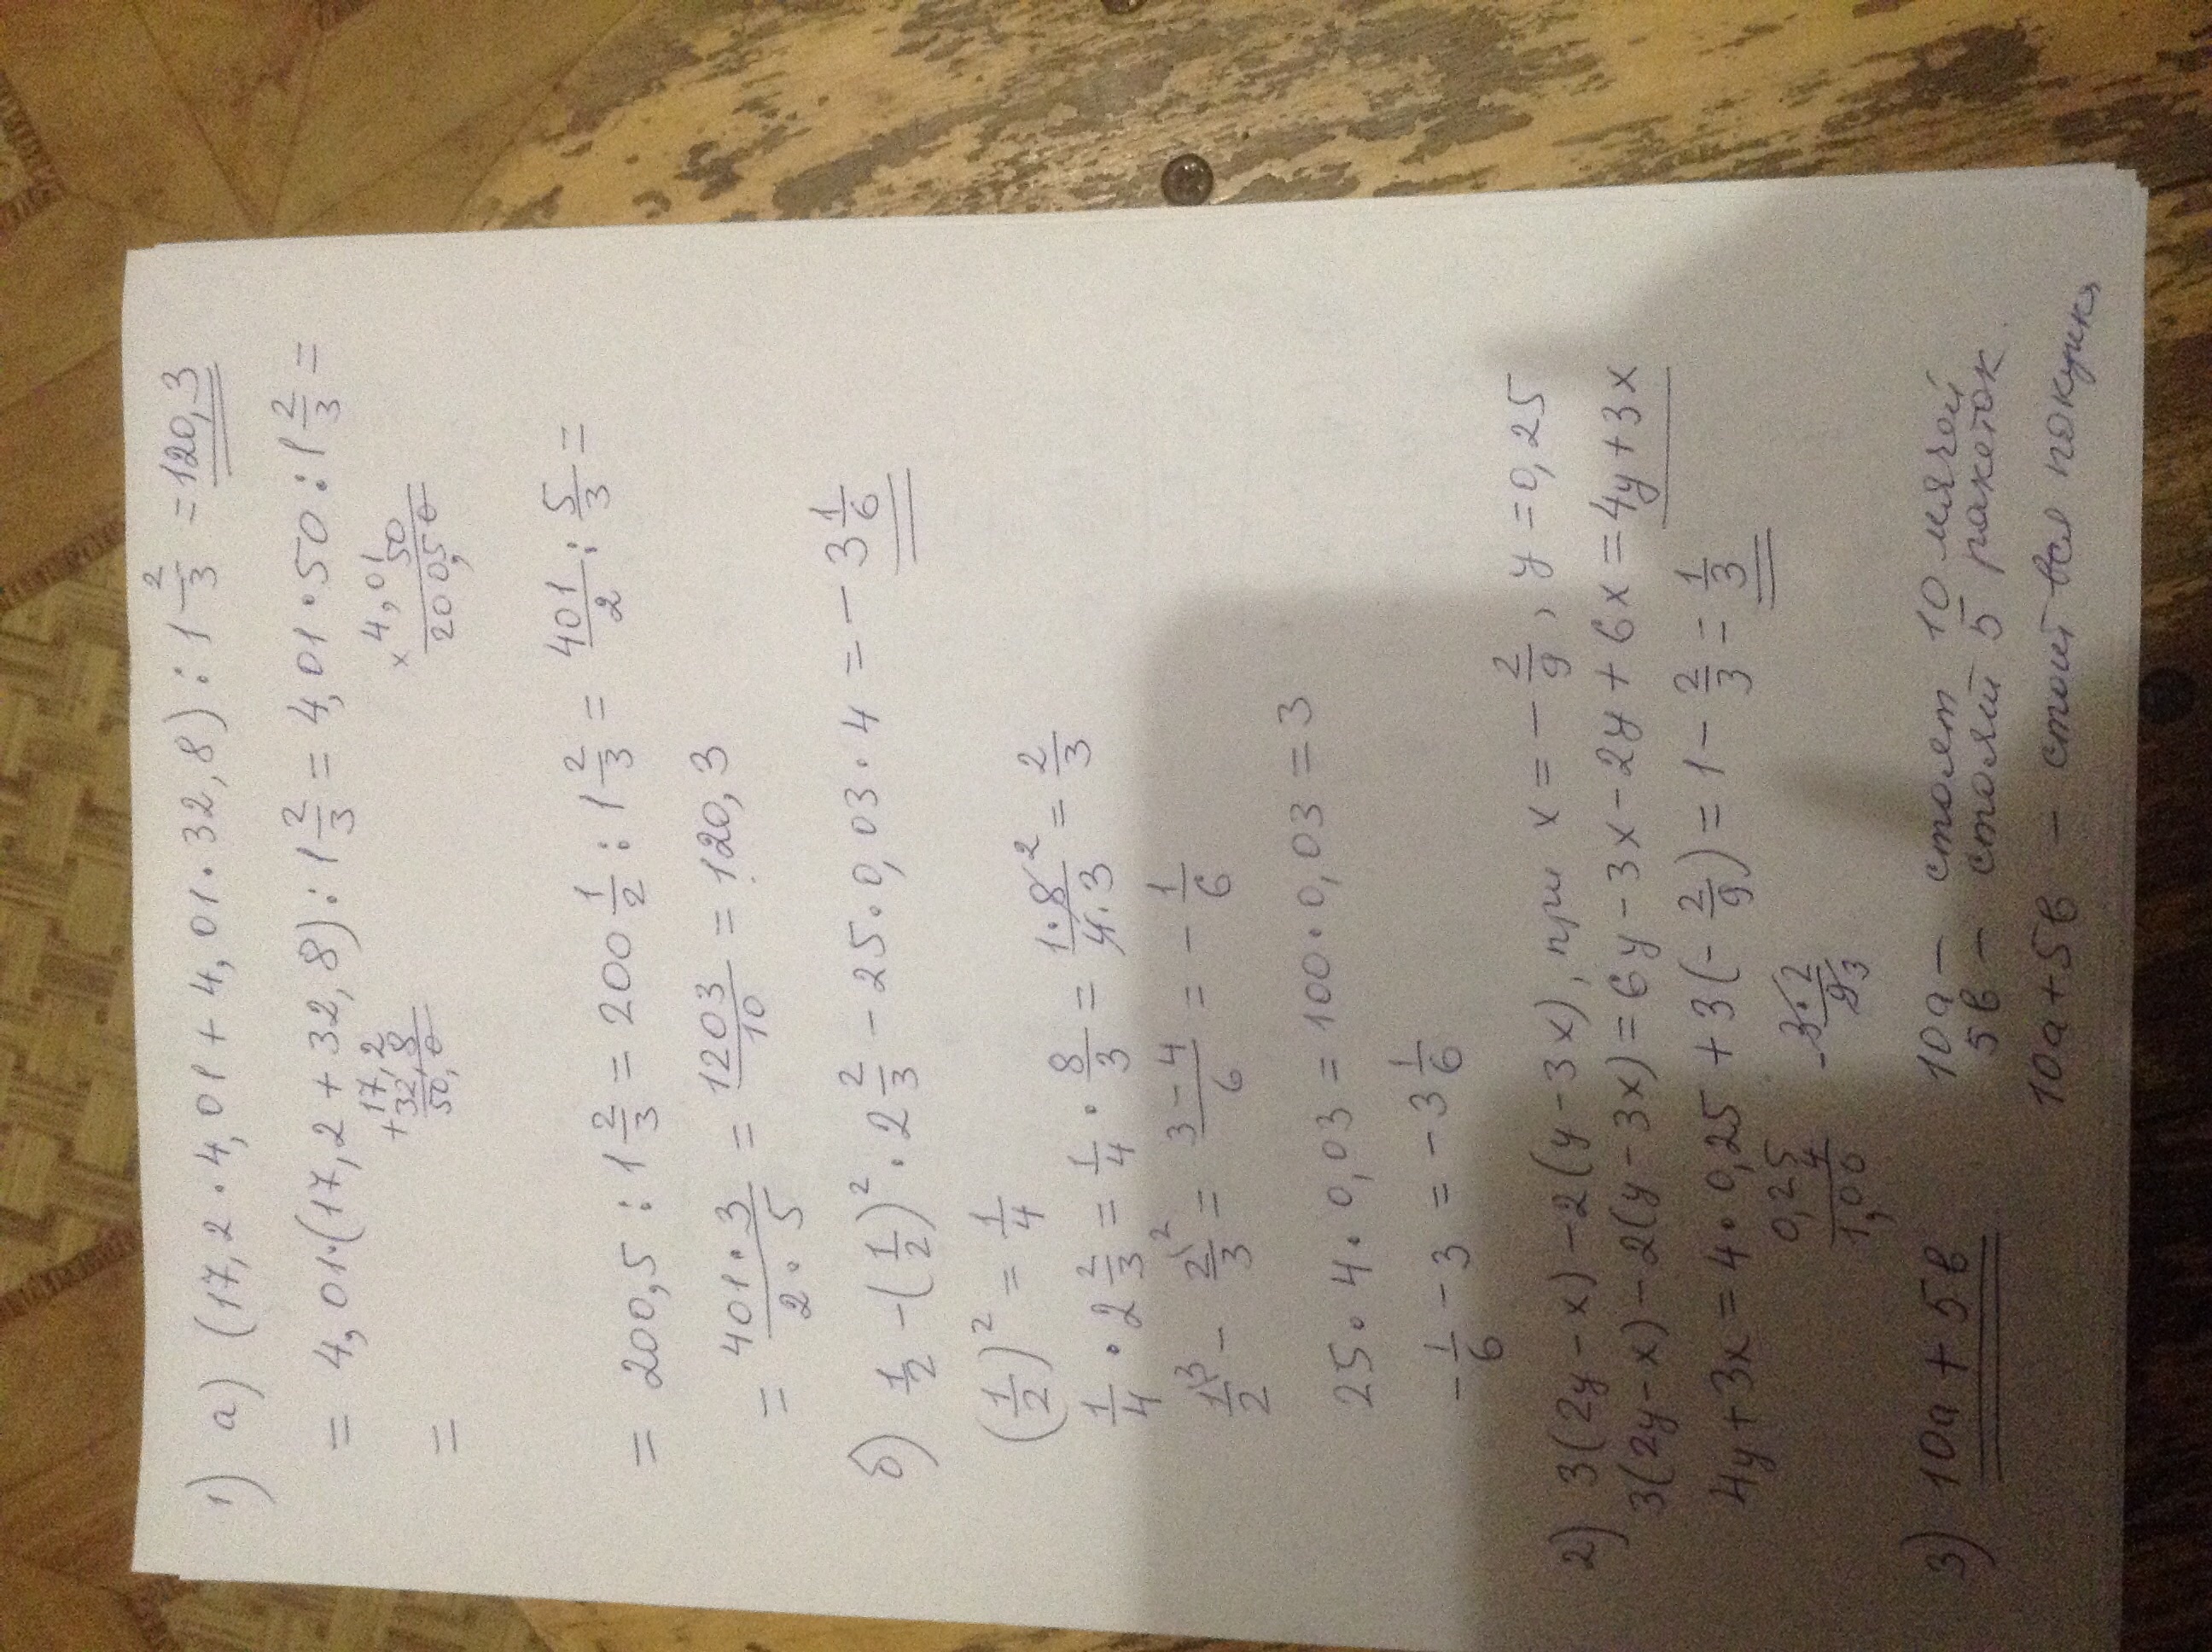 1) а) (17,2 · 4,01 + 4,01 · 32,8) : 1 2/3 = 120,3
= 4,01·(17,2 + 32,8) : 1 2/3 = 4,01 · 50 : 1 2/3 =
+ 17,2
32,8
50,0
× 4,01
50
200,50
=
= 200,5 : 1 2/3 = 200 1/2 : 1 2/3 = 401/2 : 5/3 =
= 401 · 3 / 2 · 5 = 1203/10 = 120,3
б) 1/2 - (1/2)² · 2 2/3 - 25 · 0,03 · 4 = - 3 1/6
(1/2)² = 1/4
1/4 · 2 2/3 = 1/4 · 8/3 = 1 · 8 ² / 4 · 3 = 2/3
1 ³/2 - 2 ²/3 = 3 - 4 / 6 = - 1/6
25 · 4 · 0,03 = 100 · 0,03 = 3
- 1/6 - 3 = - 3 1/6
2) 3(2y - x) - 2(y - 3x), при x = - 2/9, y = 0,25
3(2y - x) - 2(y - 3x) = 6y - 3x - 2y + 6x = 4y + 3x
4y + 3x = 4 · 0,25 + 3(- 2/9) = 1 - 2/3 = 1/3
0,25
4
1,00
- 3 · 2 / 9 3
3) 10a + 5b
10a - стоят 10 мячей
5b - стояли 5 ракеток.
10a + 5b - стоит вся покупка